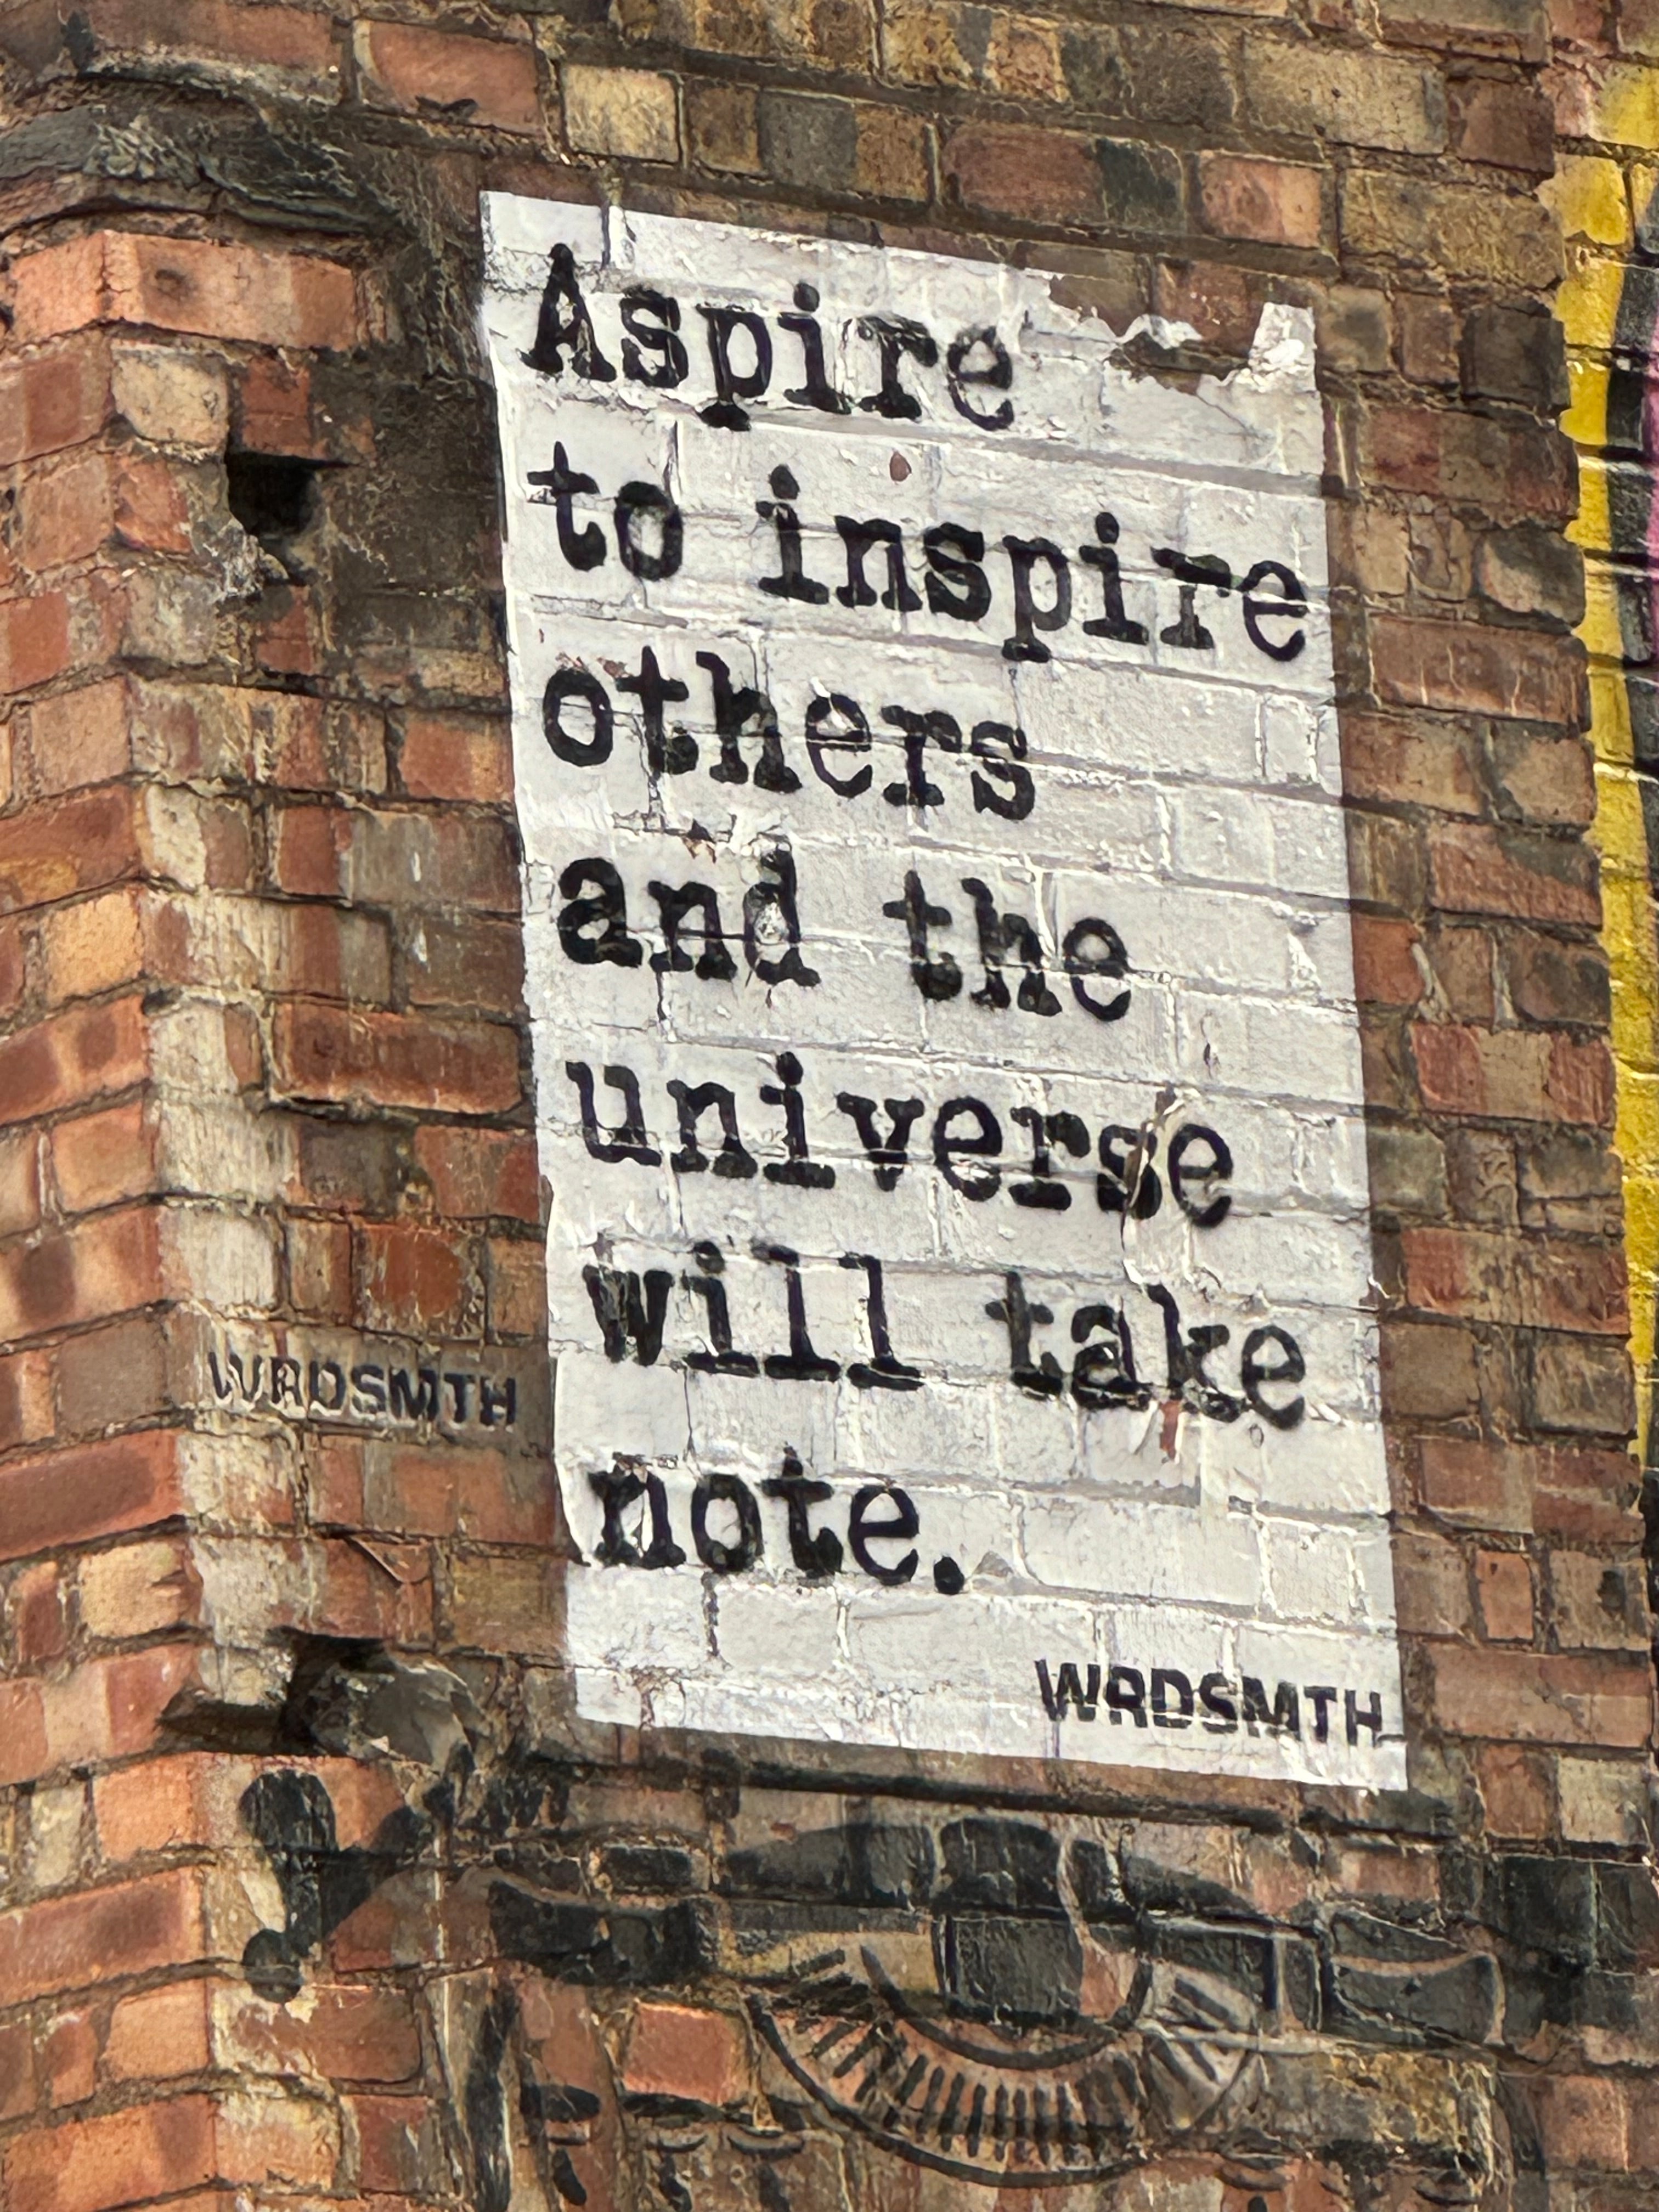 Aspire
to inspire
others
and the
universe
will take
note.
WRDSMTH
WRDSMTH